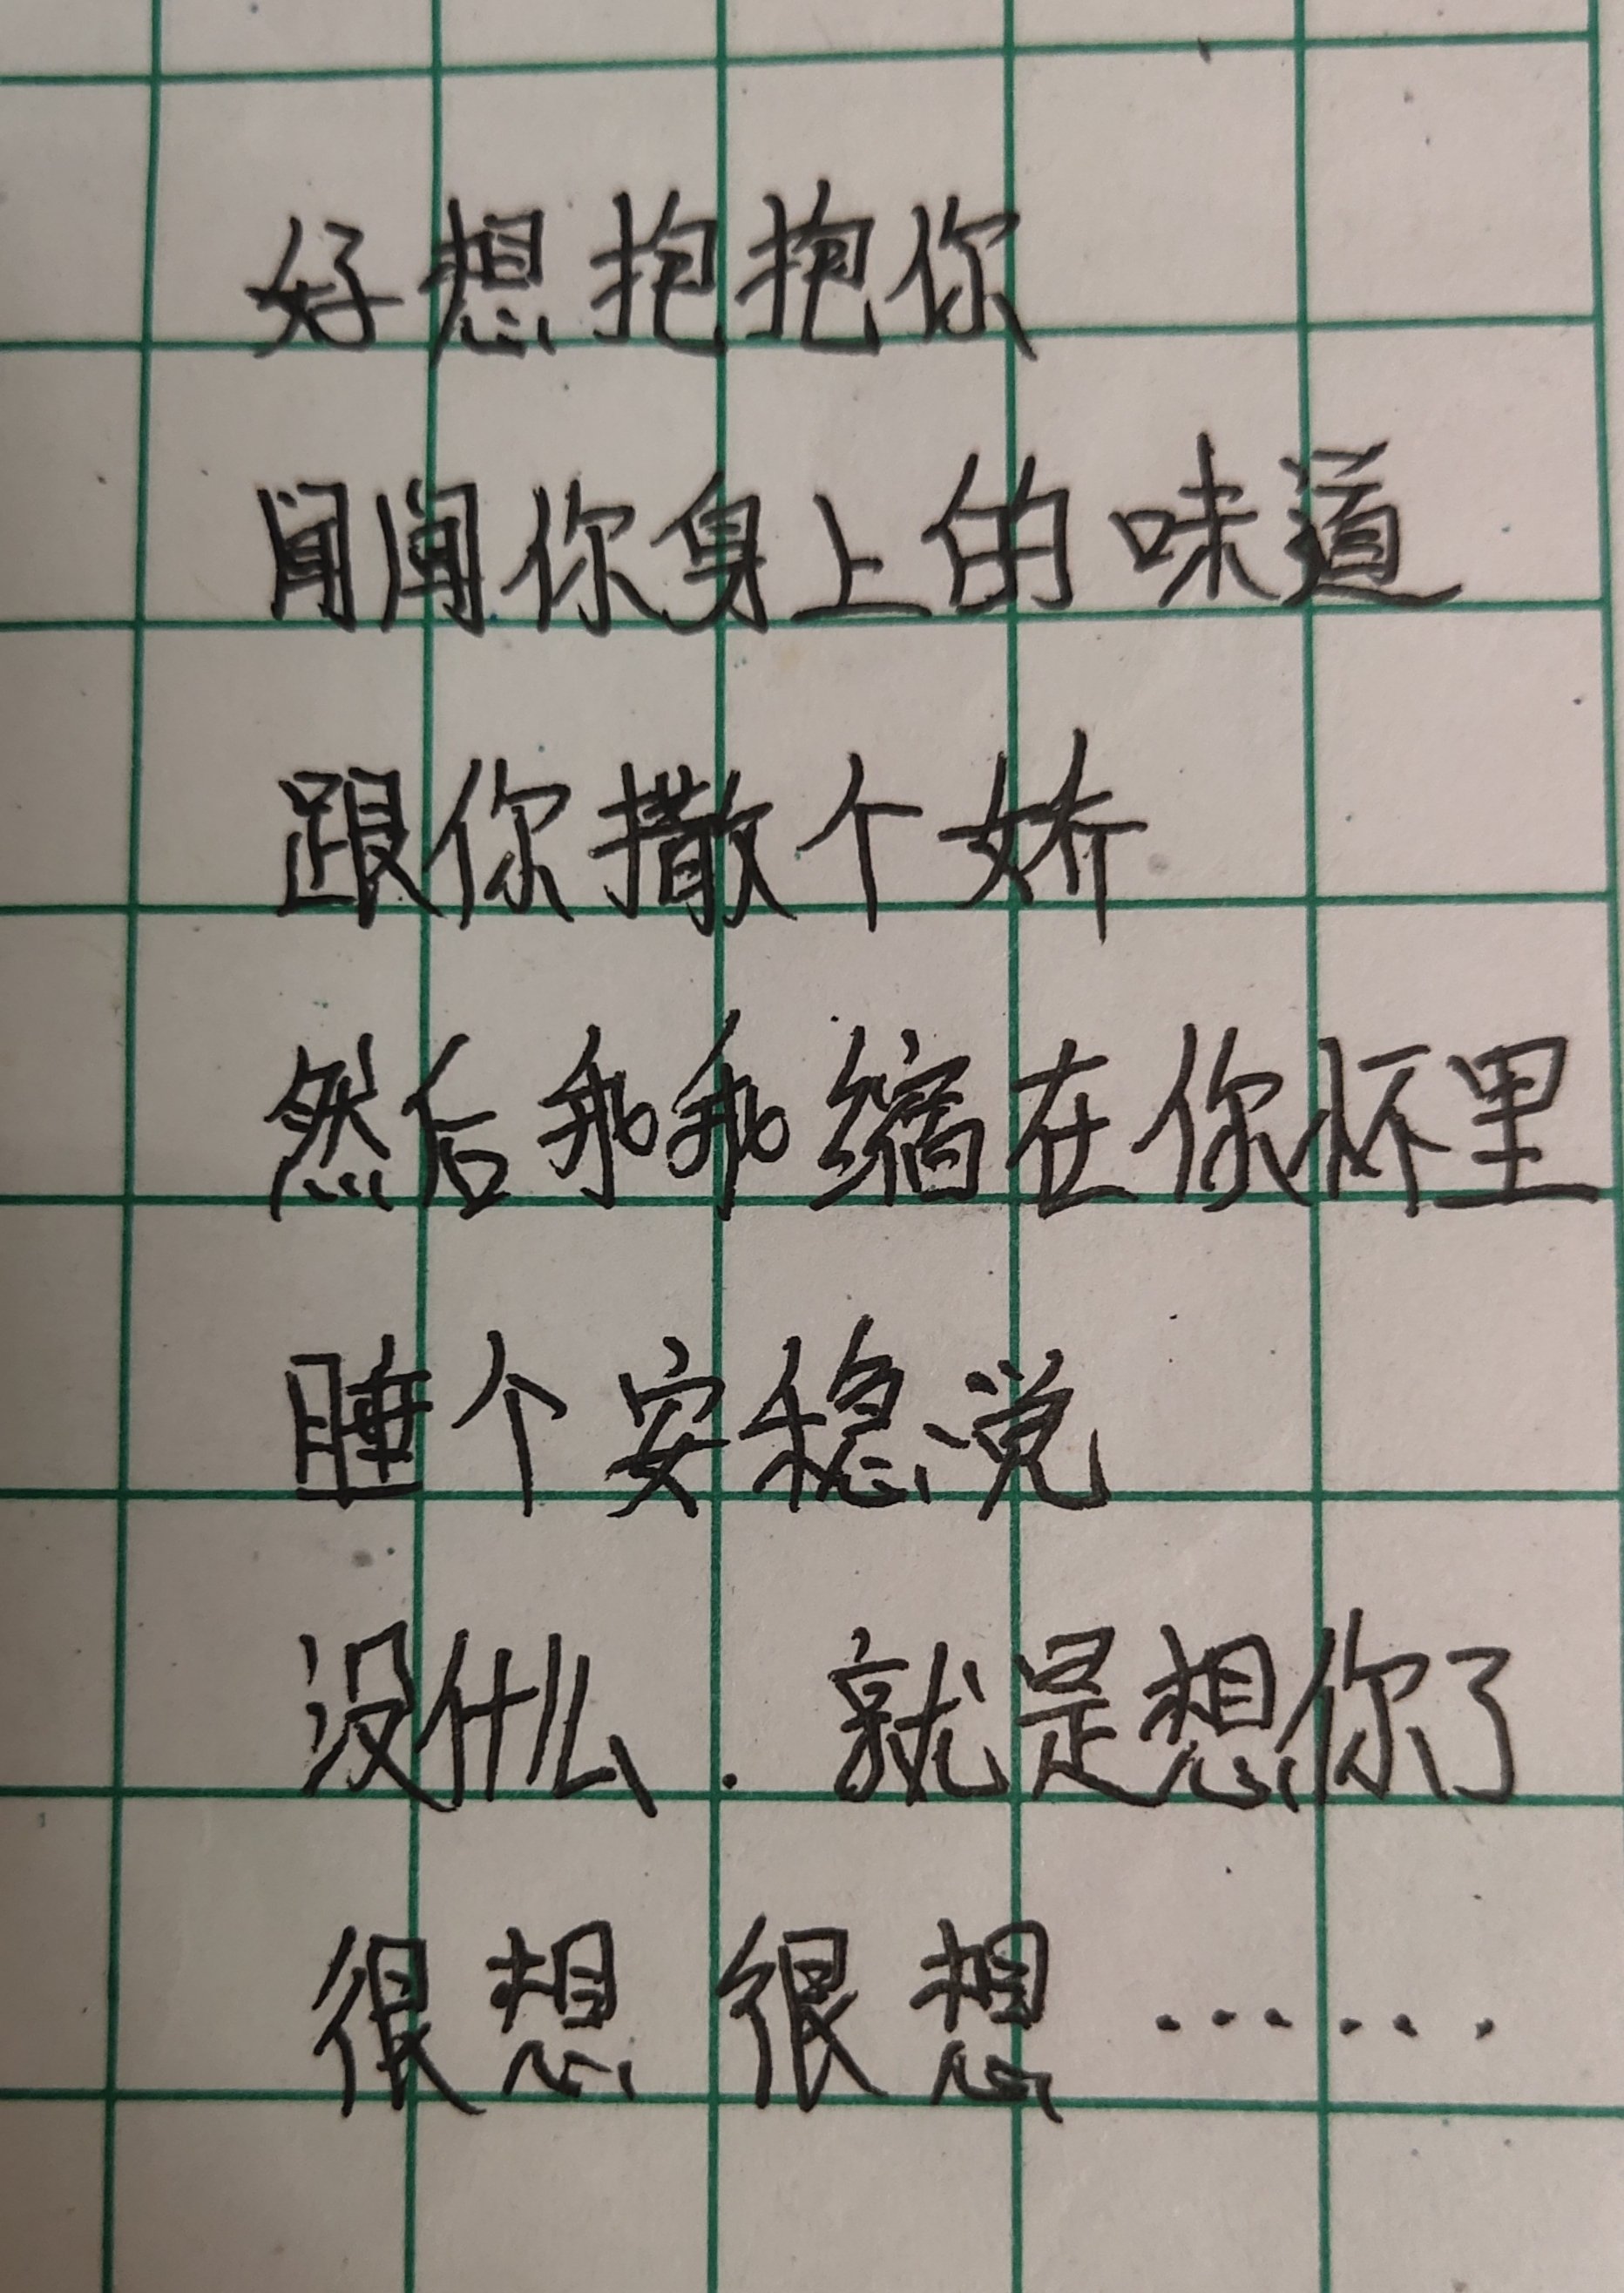 好想抱抱你
闻闻你身上的味道
跟你撒个娇
然后乖乖缩在你怀里
睡个安稳觉
没什么.就是想你了
很想很想······